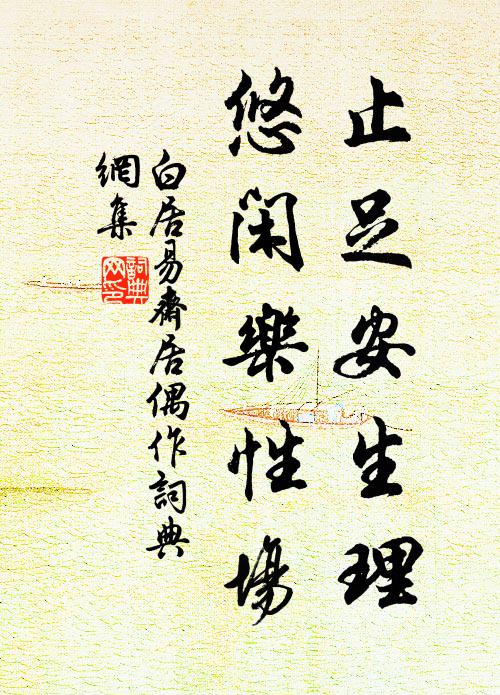 止足安生理
悠閑樂性場
白居易齋居偶作詞典
網集
詞典網印